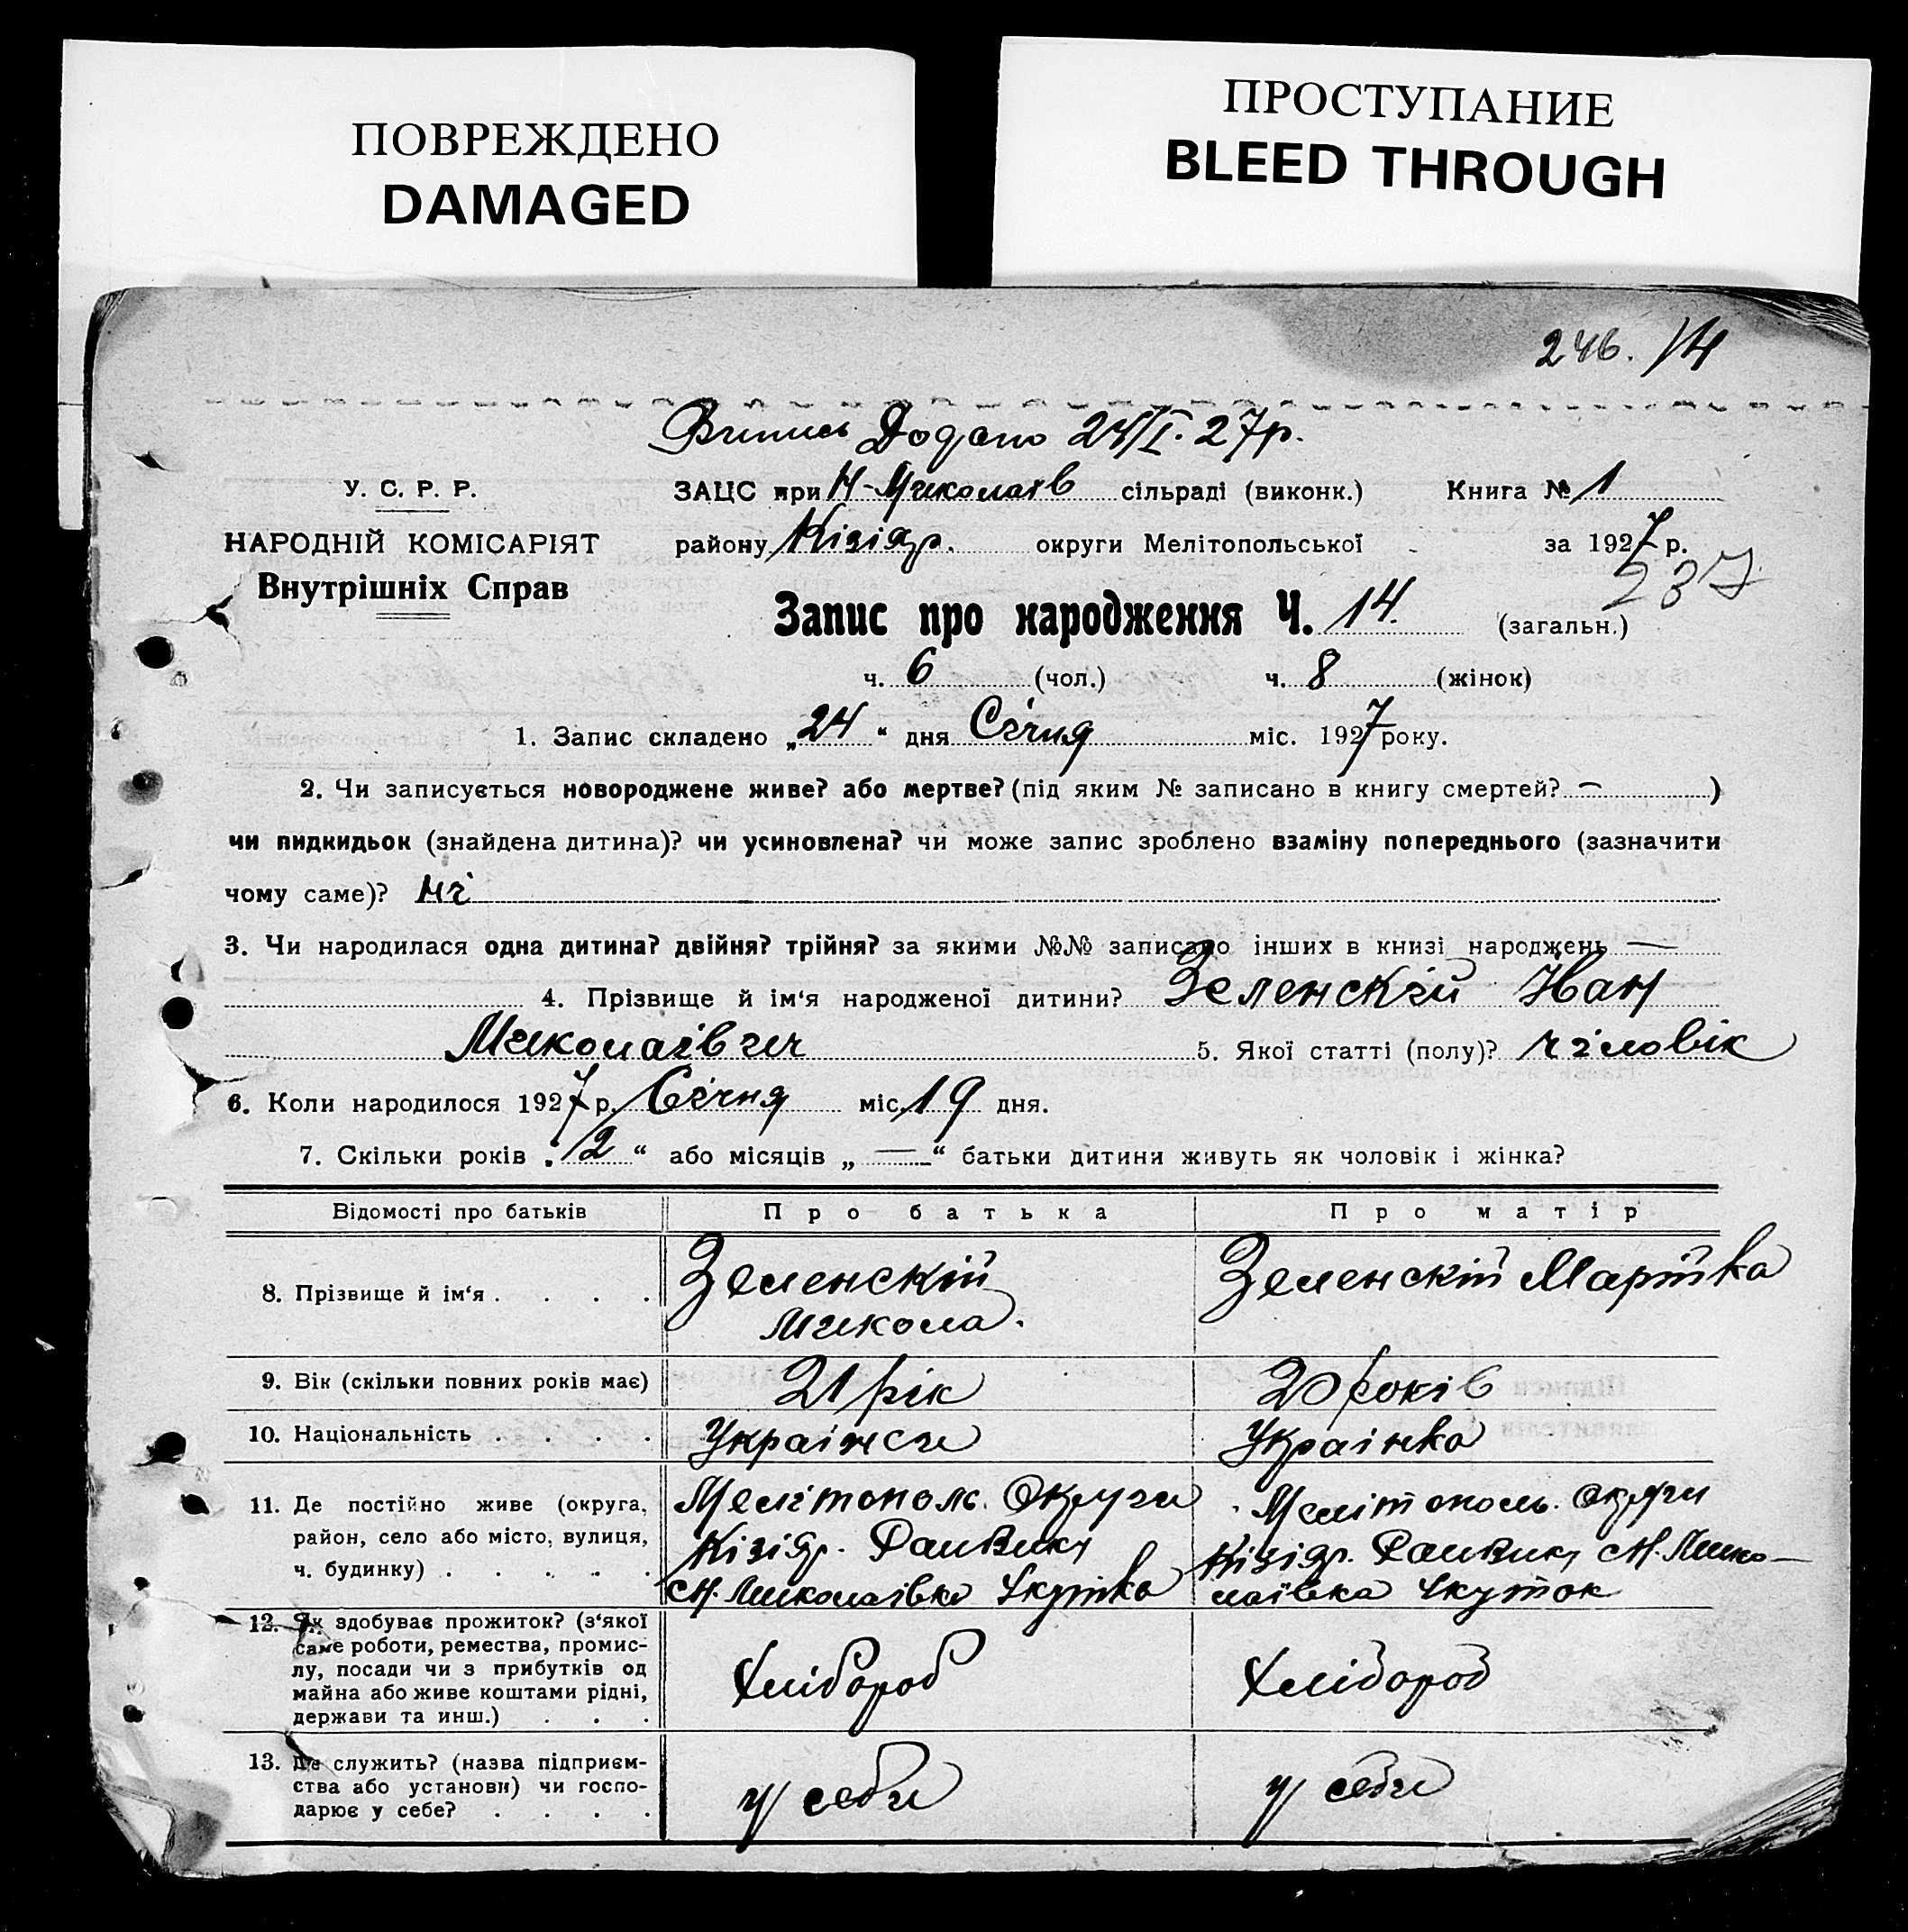 ПОВРЕЖДЕНО
DAMAGED
ПРОСТУПАНИЕ
BLEED THROUGH
246. 14
Додано 24/I. 27р.
У. С. Р. Р.
ЗАЦС при Н-Миколаів сільраді (виконк.) Книга № 1
НАРОДНІЙ КОМІСАРІЯТ
району Кізіяр. округи Мелітопольської за 1927 р.
237
Внутрішніх Справ
Запис про народження Ч. 14. (загальн.)
ч. 6 (чол.) ч. 8 (жінок)
1. Запис складено „24“ дня Січня міс. 1927 року.
2. Чи записується новороджене живе? або мертве? (під яким № записано в книгу смертей? — )
чи пидкидьок (знайдена дитина)? чи усиновлена? чи може запис зроблено взаміну попереднього (зазначити
чому саме)? ні
3. Чи народилася одна дитина? двійня? трійня? за якими №№ записано інших в книзі народжень —
4. Прізвище й ім‘я народженої дитини? Зеленскій Иван
Миколаівич 5. Якої статті (полу)? чіловік
6. Коли народилося 1927 р. Січня міс. 19 дня.
7. Скільки років „2“ або місяців „—“ батьки дитини живуть як чоловік і жінка?
Відомості про батьків Про батька Про матір
8. Прізвище й ім‘я . . . . Зеленскій Микола. Зеленскій Марійка
9. Вік (скільки повних років має) 21 рік 20 років
10. Національність . . . . Украінси Украінка
11. Де постійно живе (округа, Мелітополь. Округи Мелітополь. округи
район, село або місто, вулиця, Кізіяр. Кізіяр. Н. Мико-
ч. будинку) . . . . . Н. Миколаівка лаівка
12. Як здобуває прожиток? (з‘якої
саме роботи, ремества, промис-
лу, посади чи з прибутків од
майна або живе коштами рідні,
держави та инш.) . . . Хлібороб Хлібороб
13. Де служить? (назва підприєм-
ства або установи) чи госпо-
дарює у себе? . . . . у себи у себи